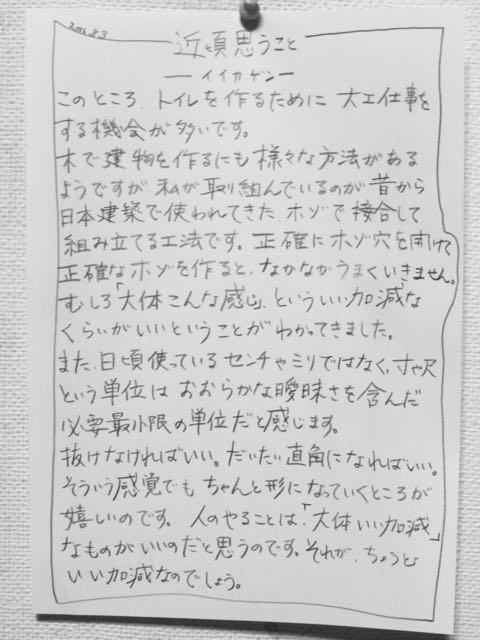 2016.8.3
近頃思うこと
ーイイカゲンー
このところ、トイレを作るために 大工仕事を
する機会が多いです。
木で建物を作るにも様々な方法がある
ようですが 私が取り組んでいるのが 昔から
日本建築で使われてきた、ホゾで接合して
組み立てる工法です。正確にホゾ穴を開けて
正確なホゾを作ると、なかなかうまくいきません。
むしろ「大体こんな感じ」、といういい加減な
くらいがいいということがわかってきました。
また、日頃使っているセンチやミリではなく、寸や尺
という単位は おおらかな曖昧さを含んだ
必要最小限の単位だと感じます。
抜けなければいい。だいたい直角になればいい。
そういう感覚でも ちゃんと形になっていくところが
嬉しいのです。人のやることは、「大体いい加減」
なものがいいのだと思うのです。それが、ちょうど
いい加減なのでしょう。